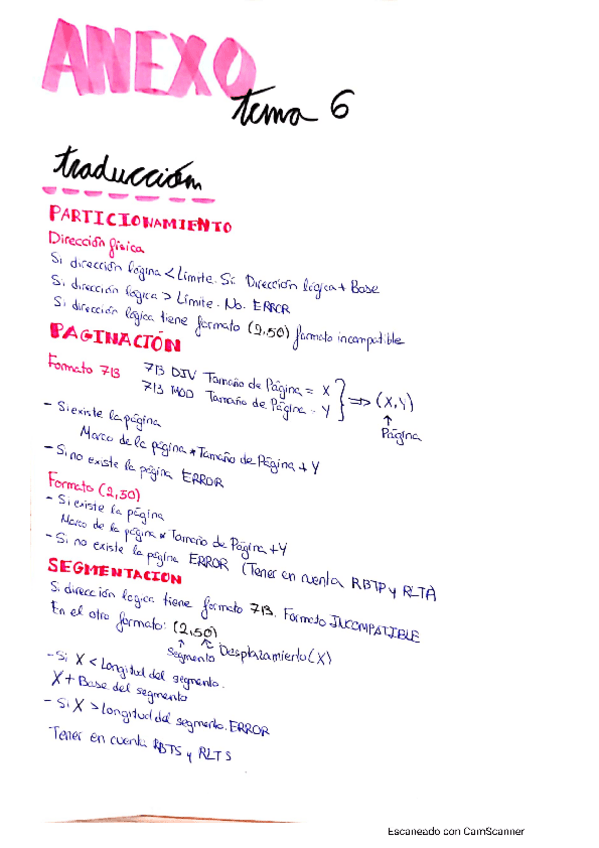 ANEXO
tema 6
traducción
PARTICIONAMIENTO
Dirección física
Si dirección lógina < Límite. Sí Dirección lógica + Base
Si dirección lógica > Límite. No. ERROR
Si dirección lógica tiene formato (2,50) formato incompatible
PAGINACIÓN
Formato 713 713 DIV Tamaño de Página = X
713 MOD Tamaño de Página = Y } => (X,Y)
↑
Página
- Si existe la página
Marco de la página * Tamaño de Página + Y
- Si no existe la página ERROR
Formato (2,50)
- Si existe la página
Marco de la página * Tamaño de Página + Y
- Si no existe la página ERROR (Tener en cuenta RBTP y RLTA
SEGMENTACION
Si dirección logica tiene formato 713. Formato INCOMPATIBLE
En el otro formato: (2,50)
Segmento Desplazamiento (X)
- Si X < Longitud del segmento.
X + Base del segmento
- Si X > longitud del segmento. ERROR
Tener en cuenta RBTS y RLTS
Escaneado con CamScanner